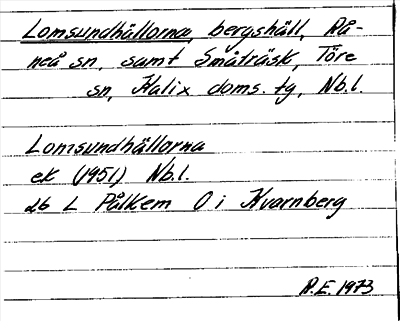 Lomsundhällorna, bergshäll, Rå-
neå sn, samt Småträsk, Töre
sn, Kalix doms. tg, Nb.l.
Lomsundhällorna
ek (1951) Nb.l.
26 L Pålkem O i Kvarnberg
R.E. 1973